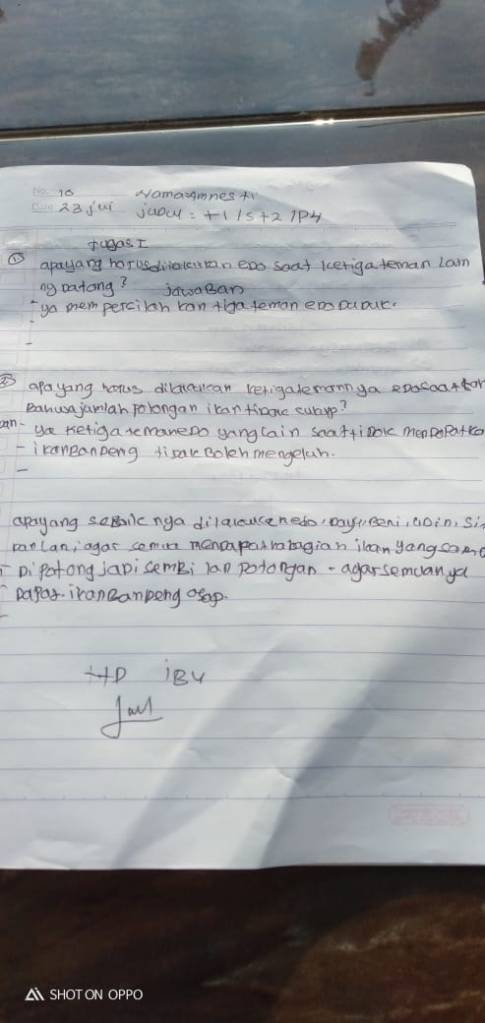 No. 10 Nama: Amnesti
Date 23 juli judul: t1 1s t2 1p4
tugas I
① apayang harus dilakukan edo saat ketiga teman lain
ny datang? jawaBan
- ya mempersilah kan tiga teman edo duduk.
-
-
② apayang harus dilakukan ketiga temannya edo saat
Bahwa jumlah potongan ikan tidak cukup?
an - ya ketiga teman edo yang lain saat tidak mendapatka
- ikan Bandeng tidak Boleh mengeluh.
-
apayang seBaik nya dilakukan edo, Bayu, Beni, udin, Si
dan lani, agar semua mendapatka Bagian ikan yang sama
- Dipotong jadi sembilan potongan - agar semuanya
- Dapat ikan Bandeng asap.
ttD iBu
SHOT ON OPPO